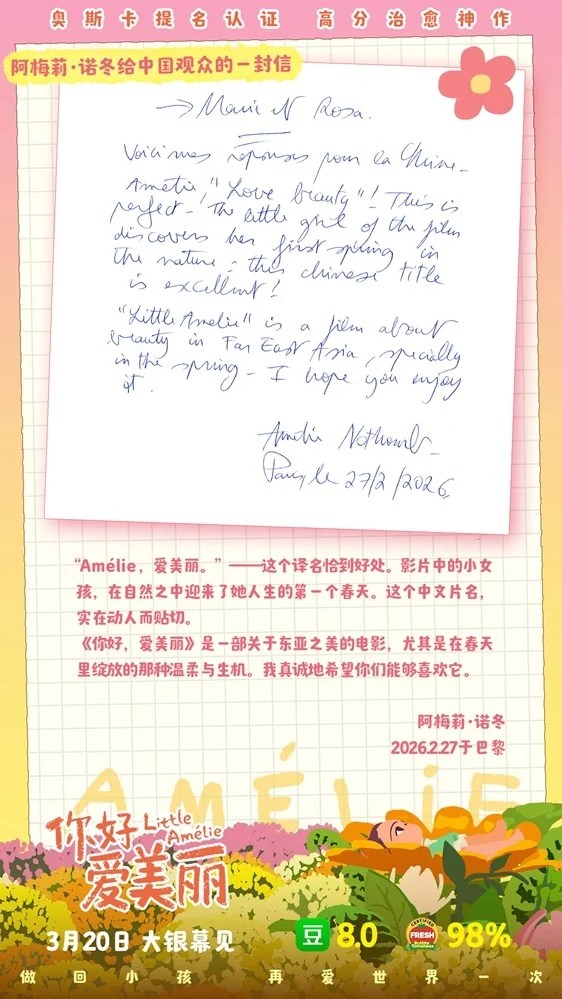 奥斯卡提名认证 高分治愈神作
阿梅莉·诺冬给中国观众的一封信
→ Marie et Rosa.
Voici mes réponses pour la Chine.
Amélie "Love beauty"! This is
perfect! The little girl of the film
discovers her first spring in
the nature: this chinese title
is excellent!
"Little Amélie" is a film about
beauty in Far East Asia, specially
in the spring. I hope you enjoy
it.
Amélie Nothomb
Paris, le 27/2/2026
“Amélie，爱美丽。”——这个译名恰到好处。影片中的小女
孩，在自然之中迎来了她人生的第一个春天。这个中文片名，
实在动人而贴切。
《你好，爱美丽》是一部关于东亚之美的电影，尤其是在春天
里绽放的那种温柔与生机。我真诚地希望你们能够喜欢它。
阿梅莉·诺冬
2026.2.27于巴黎
AMÉLiE
你好 Little
Amélie
爱美丽
3月20日 大银幕见
豆 8.0
FRESH 98%
做回小孩 再爱世界一次